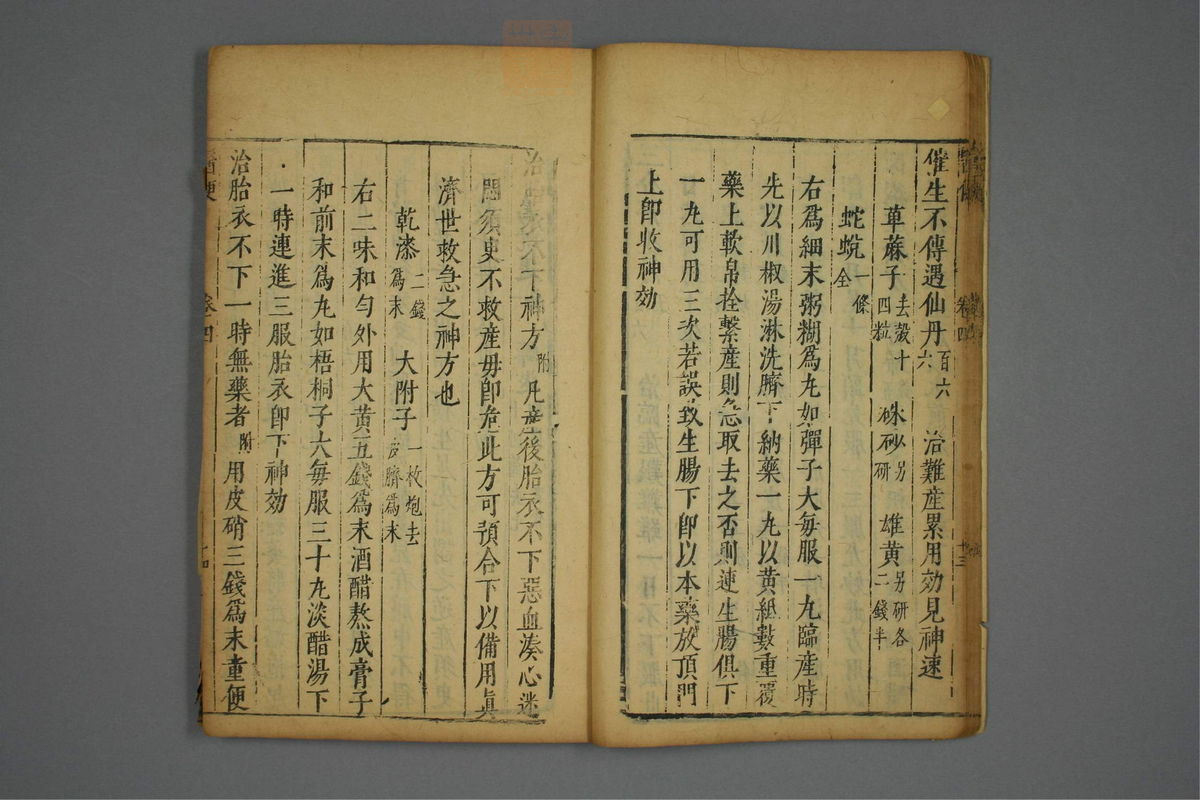 催生不傳遇仙丹百六六 治難產累用効見神速
萆蔴子去殼十四粒 硃砂另研 雄黃另研各二錢半
蛇蛻一條全
右爲細末粥糊爲丸如彈子大每服一丸臨產時
先以川椒湯淋洗臍下納藥一丸以黃紙數重覆
藥上軟帛拴繫產則急取去之否則連生腸俱下
一丸可用三次若誤致生腸下即以本藥放頂門
上即收神効
卷四
十三
治 衣不下神方附 凡產後胎衣不下惡血湊心迷
悶須臾不救產母即危此方可預合下以備用眞
濟世救急之神方也
乾漆二錢爲末 大附子一枚炮去皮臍爲末
右二味和勻外用大黃五錢爲末酒醋熬成膏子
和前末爲丸如梧桐子六每服三十丸淡醋湯下
一時連進三服胎衣即下神効
治胎衣不下一時無藥者附 用皮硝三錢爲末童便
卷四
十四